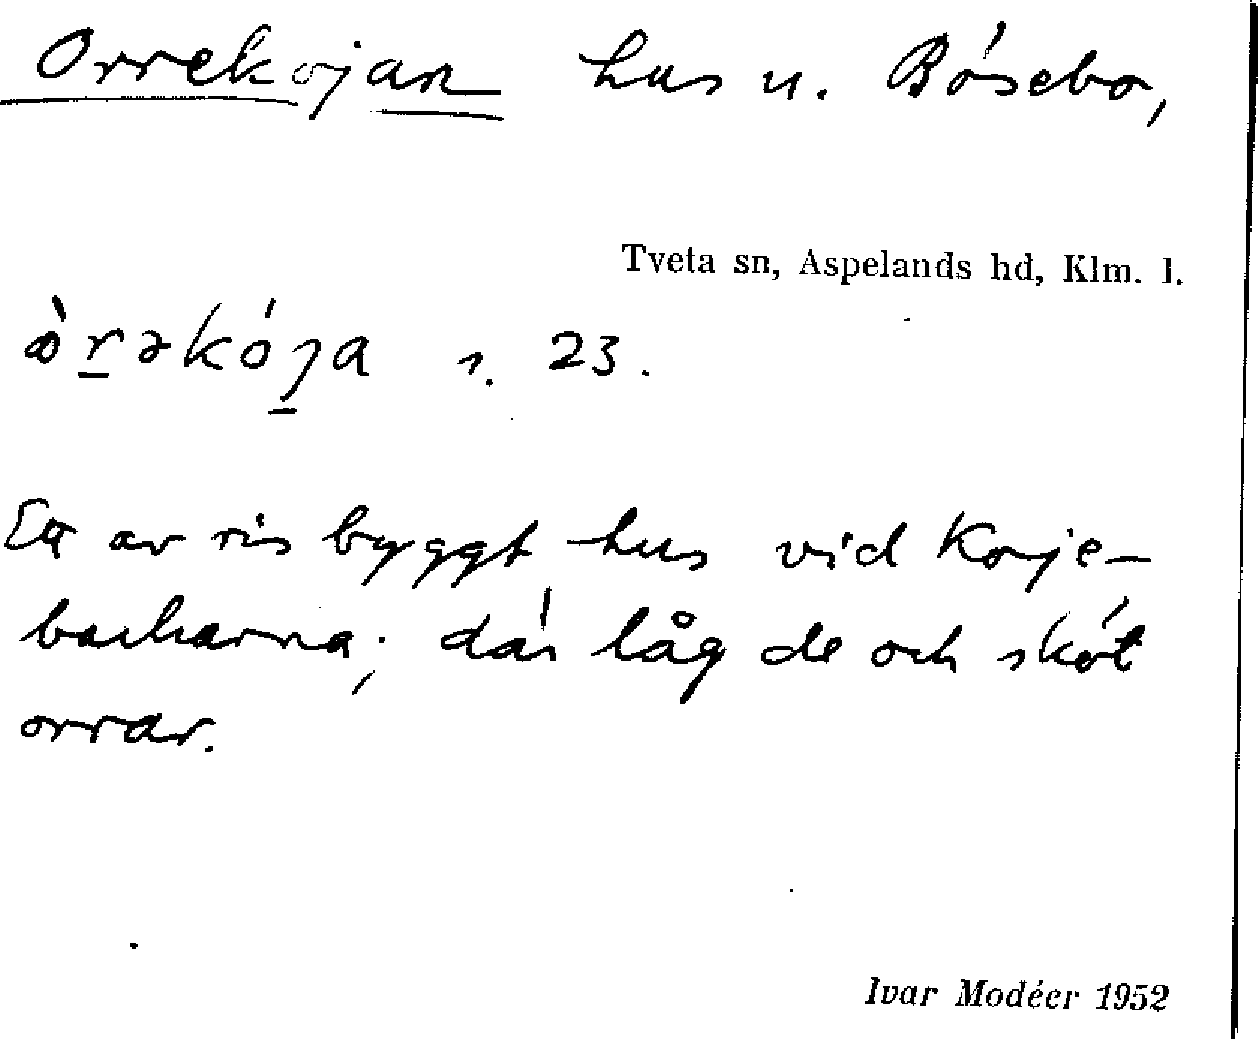 Orrekojan hus u. Bösebo,
Tveta sn, Aspelands hd, Klm. l.
òr̲əkój̲a s. 23.
Ett av ris byggt hus vid Koje-
backarna; där låg de och sköt
orrar.
Ivar Modéer 1952